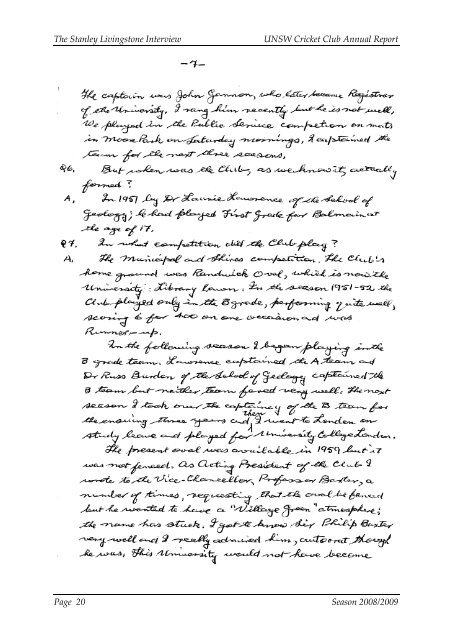 The Stanley Livingstone Interview UNSW Cricket Club Annual Report
-7-
The captain was John Gannon, who later became Registrar
of the University. I rang him recently but he is not well.
We played in the Public Service competion on mats
in Moore Park on Saturday mornings. I captained the
team for the next three seasons.
Q6. But when was the Club, as we know it, actually
formed?
A. In 1951 by Dr Laurie Lawrence of the School of
Geology; he had played First Grade for Balmain at
the age of 17.
Q7. In what competition did the Club play?
A. The Municipal and Shires competition. The Club's
home ground was Randwick Oval, which is now the
University: Library lawn. In the season 1951-52 the
Club played only in the B grade, performing quite well,
scoring 6 for 400 on one occasion and was
Runner-up.
In the following season I began playing in the
B grade team. Lawrence captained the A team and
Dr Russ Burdon of the School of Geology captained the
B team but neither team fared very well. The next
season I took over the captaincy of the B team for
the ensuing three years and then I went to London on
study leave and played for University College London.
The present oval was available in 1959 but it
was not fenced. As Acting President of the Club I
wrote to the Vice-Chancellor, Professor Baxter, a
number of times, requesting that the oval be fenced
but he wanted to have a "Village Green" atmosphere;
the name has stuck. I got to know Sir Philip Baxter
very well and I really admired him, autocrat though
he was. This University would not have become
Page 20 Season 2008/2009